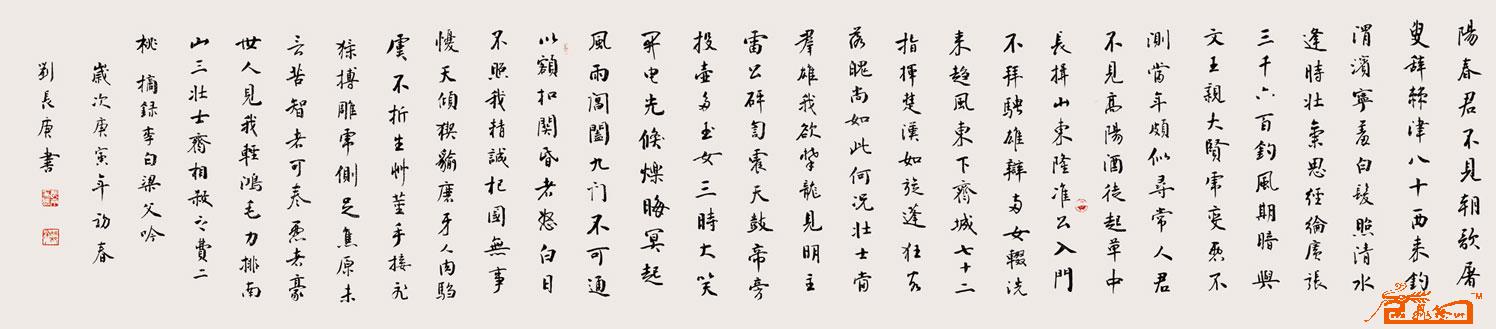 陽春君不見朝歌屠
叟辭棘津八十西来釣
渭濱寧羞白髮照清水
逢時壯氣思經綸廣張
三千六百釣風期暗與
文王親大賢虎變愚不
測當年頗似尋常人君
不見高陽酒徒起草中
長揖山東隆准公入門
不拜騁雄辯两女輟洗
来趨風東下齊城七十二
指揮楚漢如旋蓬狂客
落魄尚如此何況壯士當
羣雄我欲攀龍見明主
雷公砰訇震天鼓帝旁
投壺多玉女三時大笑
開電光倏爍晦冥起
風雨閶闔九门不可通
以額扣関昏者怒白日
不照我精誠杞國無事
懮天傾猰貐磨牙人肉騶
虞不折生艸莖手接飛
猱搏雕虎側足焦原未
言苦智者可卷愚者豪
世人見我輕鴻毛力排南
山三壯士齊相殺之費二
桃 摘録李白梁父吟
歲次庚寅年初春
劉長庚書